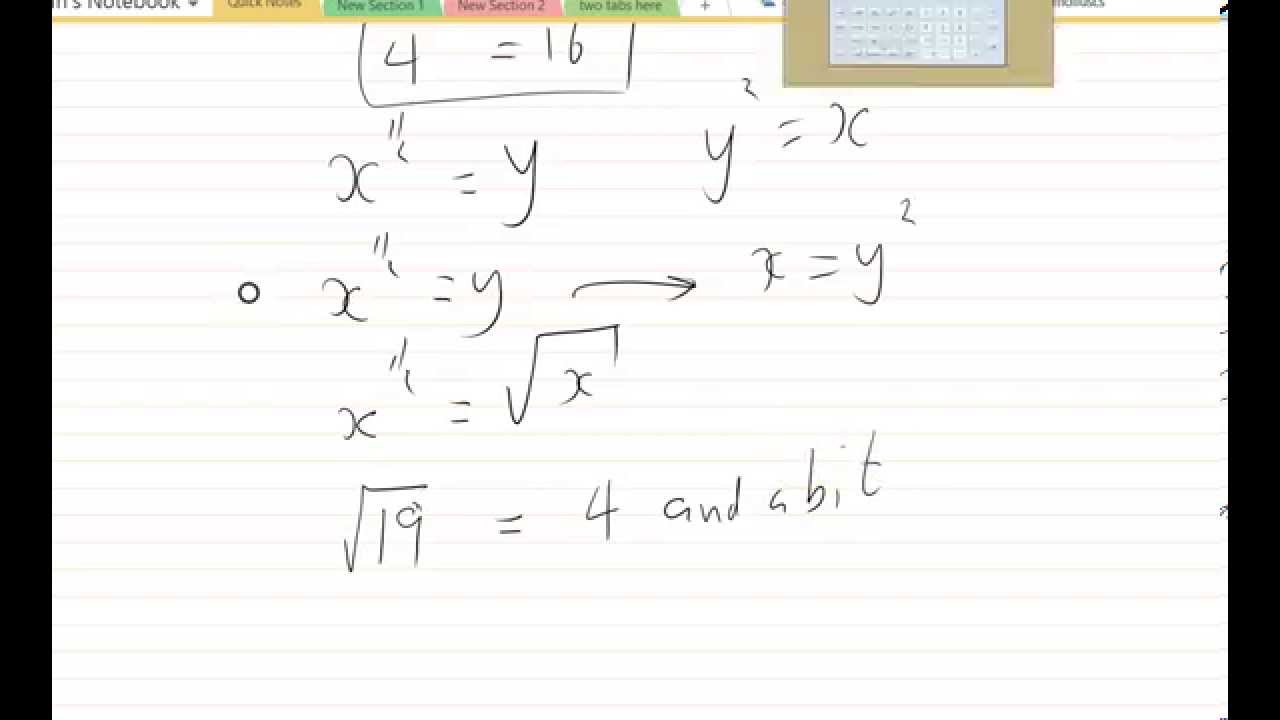 Notebook Quick Notes New Section 1 New Section 2 two tabs here +
4 = 16
x^½ = y y² = x
x^½ = y → x = y²
x^½ = √x
√19 = 4 and a bit